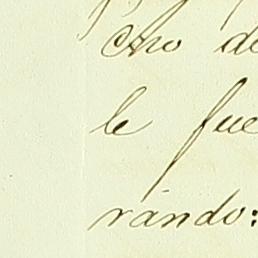 cho de
le fue
rándo: